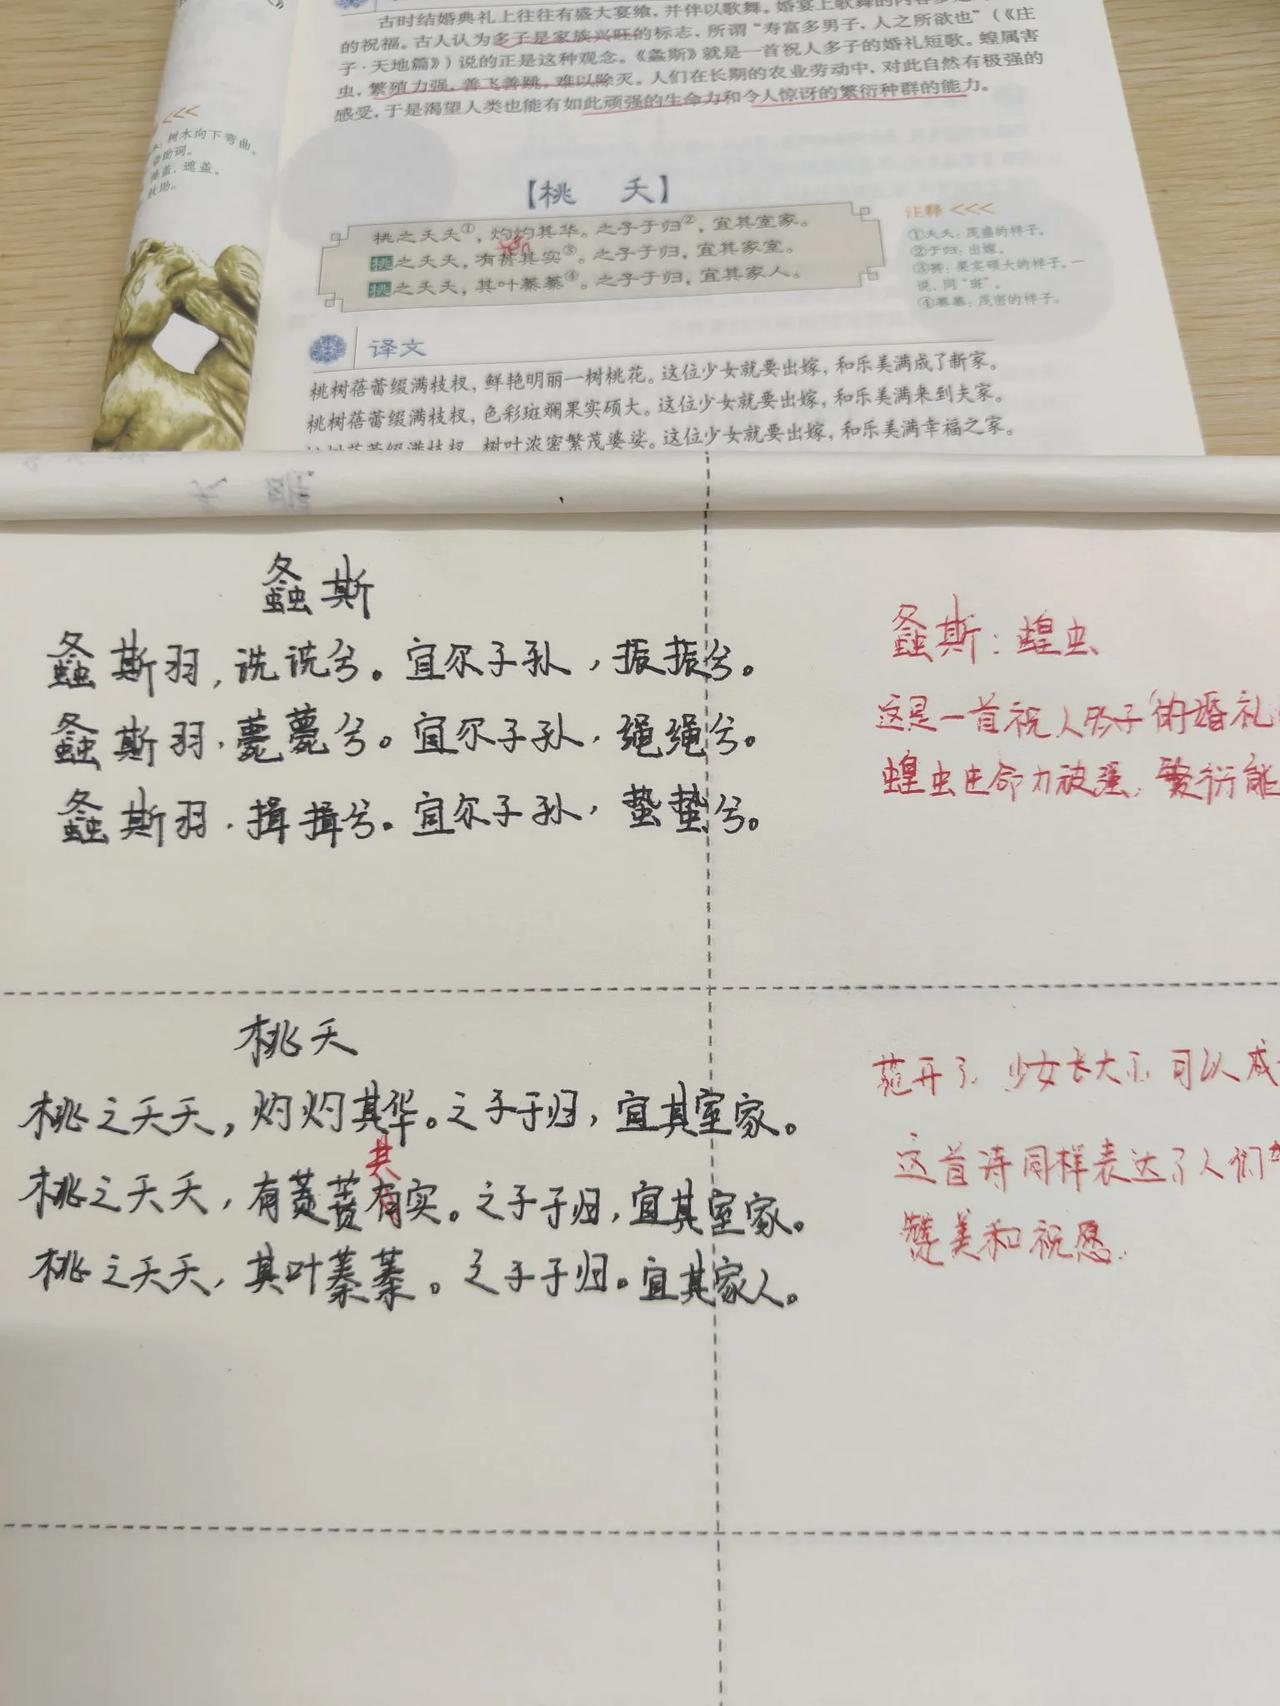 古时结婚典礼上往往有盛大宴飨，并伴以歌舞。婚宴上歌舞的内容多是
的祝福。古人认为多子是家族兴旺的标志，所谓“寿富多男子，人之所欲也”（《庄
子·天地篇》）说的正是这种观念。《螽斯》就是一首祝人多子的婚礼短歌。蝗属害
虫，繁殖力强，善飞善跳，难以除灭。人们在长期的农业劳动中，对此自然有极强的
感受，于是渴望人类也能有如此顽强的生命力和令人惊讶的繁衍种群的能力。
树木向下弯曲。
助词。
遮盖。
扶助。
【桃 夭】
桃之夭夭①，灼灼其华。之子于归②，宜其室家。
桃之夭夭，有蕡其实③。之子于归，宜其家室。
桃之夭夭，其叶蓁蓁④。之子于归，宜其家人。
注释
①夭夭：茂盛的样子。
②于归：出嫁。
③蕡：果实硕大的样子。一
说，同“斑”。
④蓁蓁：茂密的样子。
译文
桃树蓓蕾缀满枝杈，鲜艳明丽一树桃花。这位少女就要出嫁，和乐美满成了新家。
桃树蓓蕾缀满枝杈，色彩斑斓果实硕大。这位少女就要出嫁，和乐美满来到夫家。
桃树蓓蕾缀满枝杈，树叶浓密繁茂婆娑。这位少女就要出嫁，和乐美满幸福之家。
螽斯
螽斯羽，诜诜兮。宜尔子孙，振振兮。
螽斯羽，薨薨兮。宜尔子孙，绳绳兮。
螽斯羽，揖揖兮。宜尔子孙，蛰蛰兮。
螽斯：蝗虫
这是一首祝人多子的婚礼
蝗虫生命力顽强，繁衍能
桃夭
桃之夭夭，灼灼其华。之子于归，宜其室家。
其
桃之夭夭，有蕡蕡有实。之子于归，宜其室家。
桃之夭夭，其叶蓁蓁。之子于归。宜其家人。
花开了，少女长大了，可以成
这首诗同样表达了人们
赞美和祝愿.